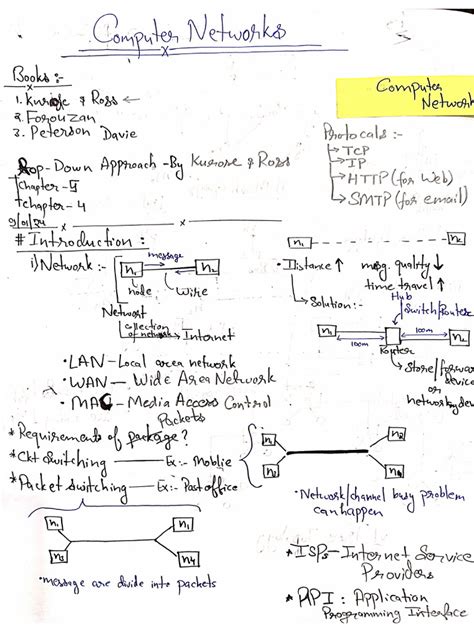 Computer Networks
Books :-
1. Kurose & Ross ←
2. Forouzan
3. Peterson Davie
Computer
Network
Protocals :-
→ TCP
→ IP
→ HTTP (for Web)
→ SMTP (for email)
Top-Down Approach - By Kurose & Ross
Chapter - 5
chapter - 4
9/01/24
# Introduction :
i) Network :-
n1 message n2
node wire
Network
collection of network → Internet
n1 n2
• Distance ↑ msg. quality ↓
time travel ↑
→ Solution :-
Hub
Switch/Router
n1 100m 100m n2
Router
→ Store/forward
device
or
networkg dev
• LAN - Local area network
• WAN - Wide Area Network
• MAC - Media Access Control
Packets
* Requirements of package?
* Ckt Switching — Ex:- Moblie
* Packet switching — Ex:- Post office
n1 n2
n3 n4
• Network/channel busy problem
can happen
n1 n2
n3 n4
• message are divide into packets
* ISPs - Internet Service
Providers
* API : Application
Programming Interface